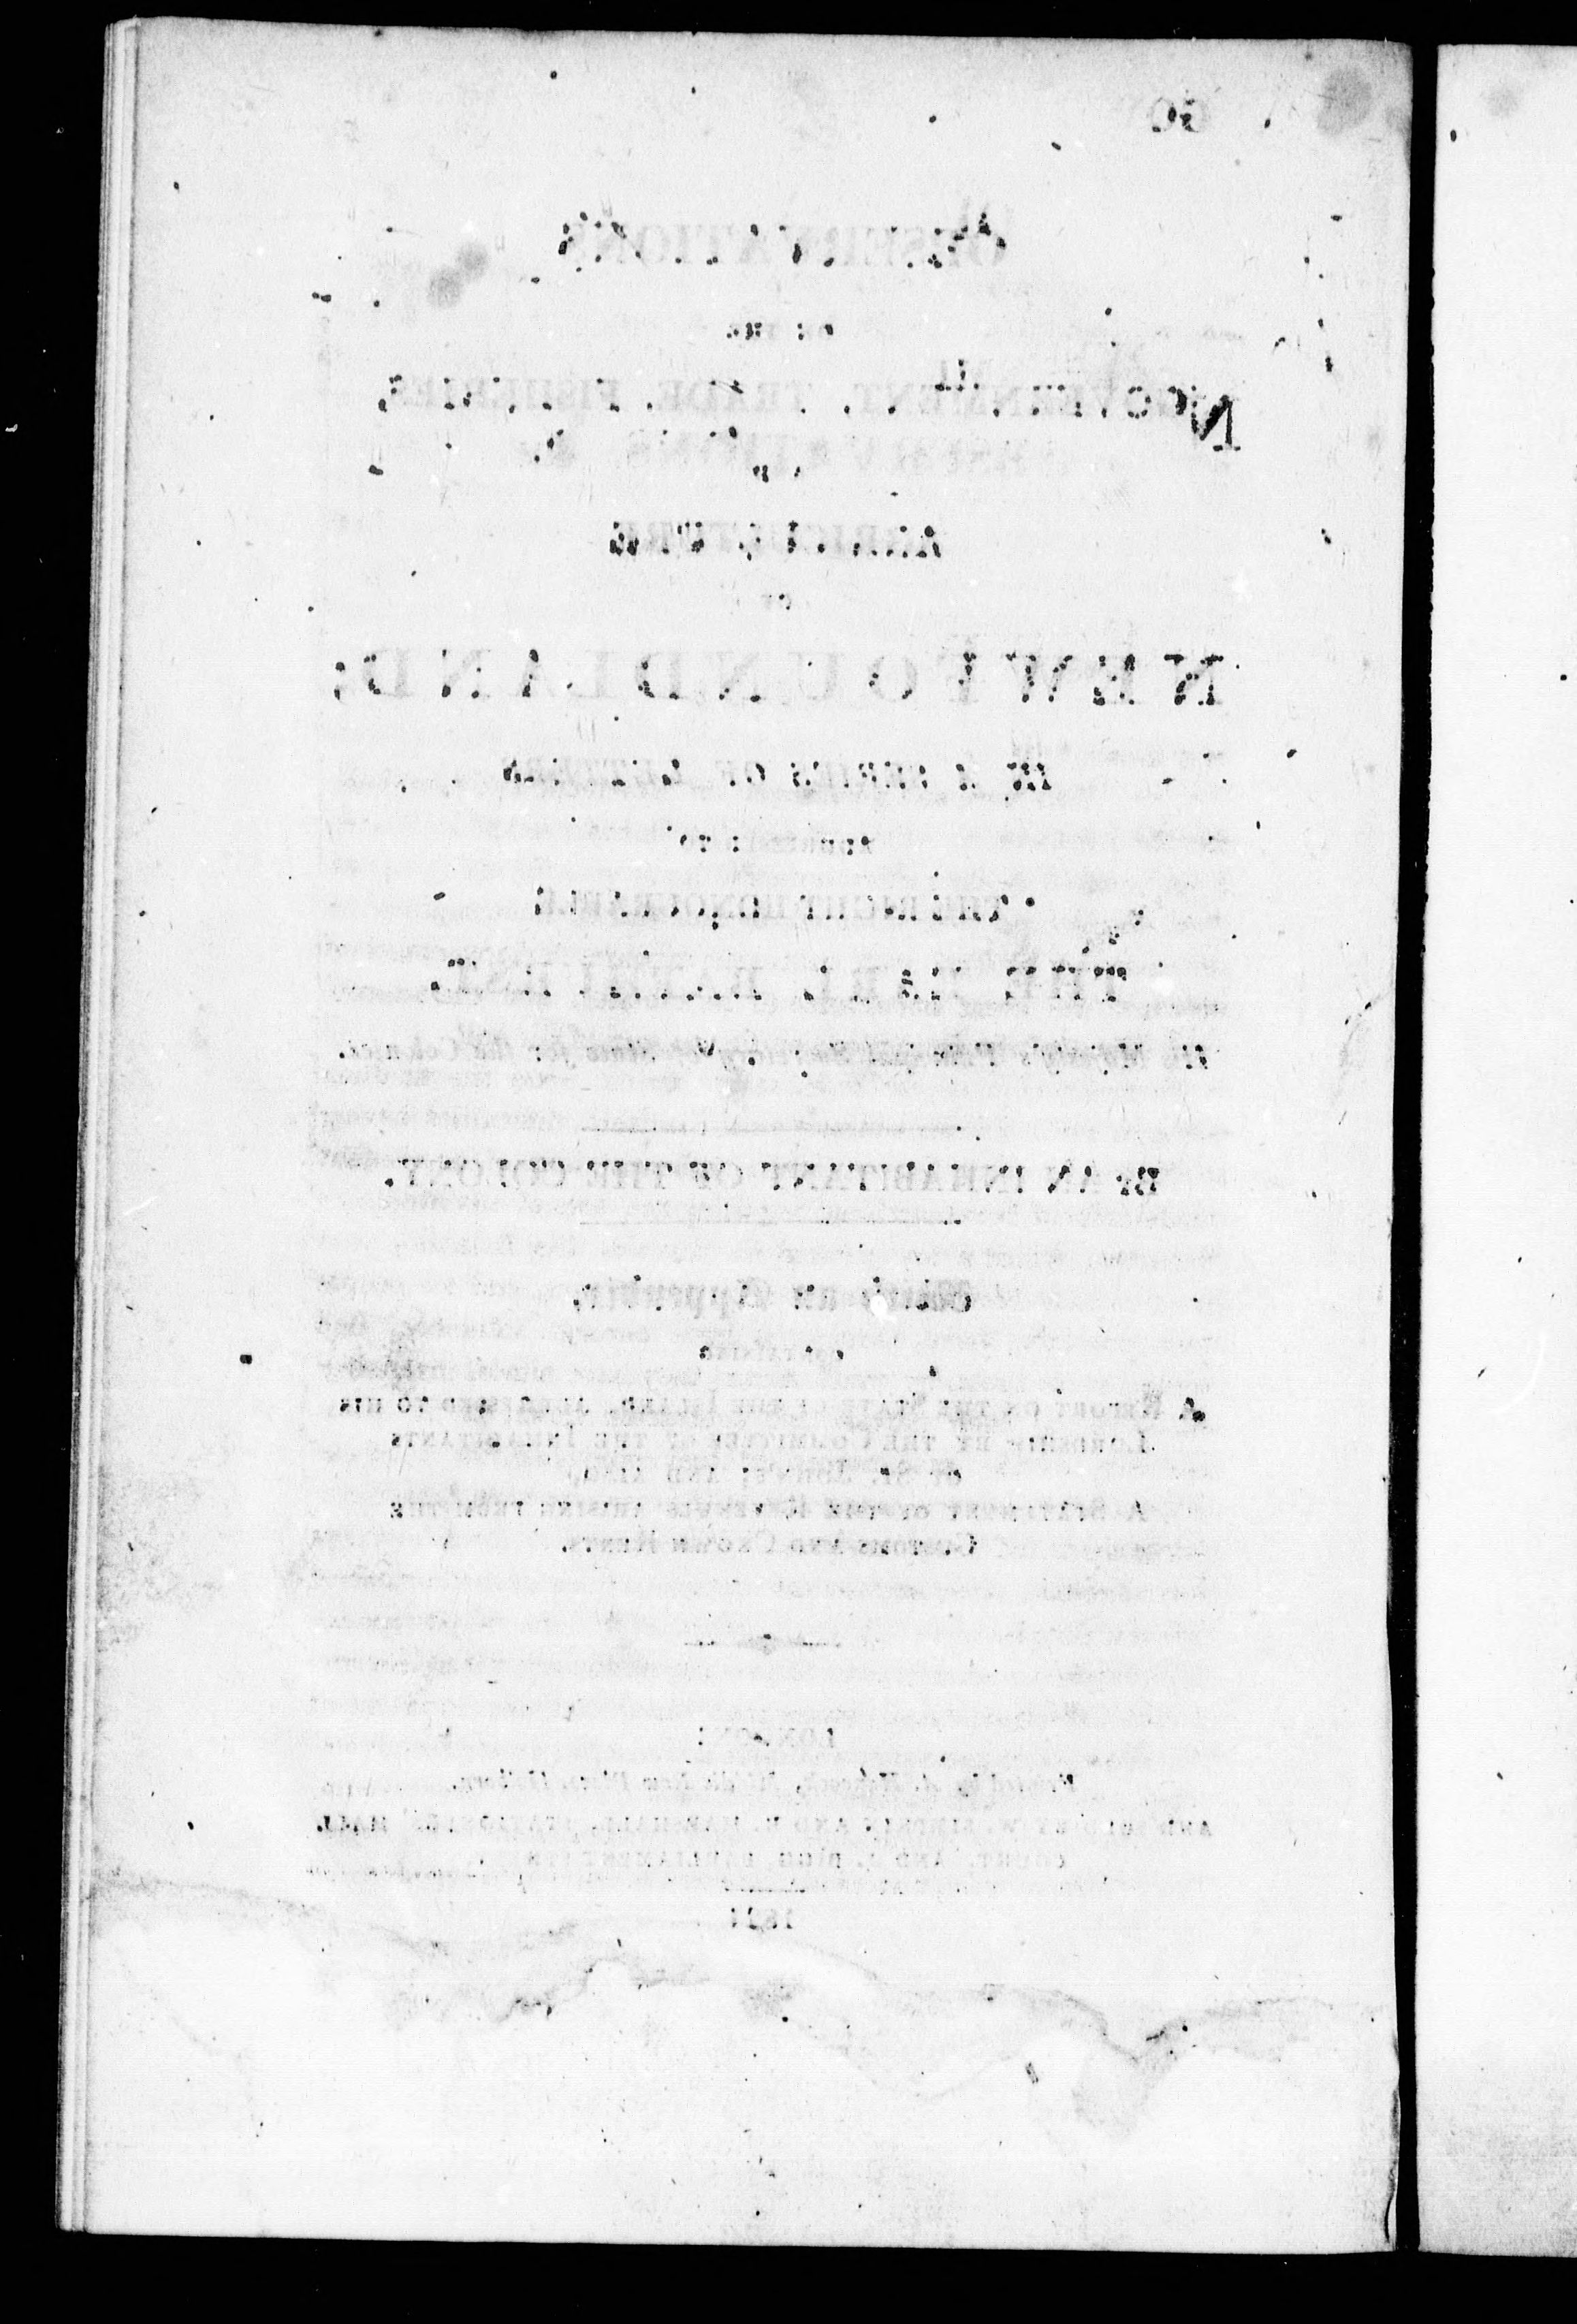 OBSERVATIONS
ON THE
GOVERNMENT, TRADE, FISHERIES,
AGRICULTURE
OF
NEWFOUNDLAND;
IN A SERIES OF LETTERS
ADDRESSED TO
THE RIGHT HONOURABLE
THE EARL BATHURST,
His Majesty's Principal Secretary of State for the Colonies.
BY AN INHABITANT OF THE COLONY.
With an Appendix,
A REPORT ON THE STATE OF THE ISLAND, ADDRESSED TO HIS
LORDSHIP BY THE COMMITTEE OF THE INHABITANTS
OF ST. JOHN'S; AND ALSO,
A STATEMENT OF THE REVENUES ARISING FROM THE
CUSTOMS AND CROWN RENTS.
LONDON:
Printed by A. Hancock, Middle Row Place, Holborn,
AND SOLD BY W. AND MARSHALL, STATIONERS' HALL
COURT, AND
1824